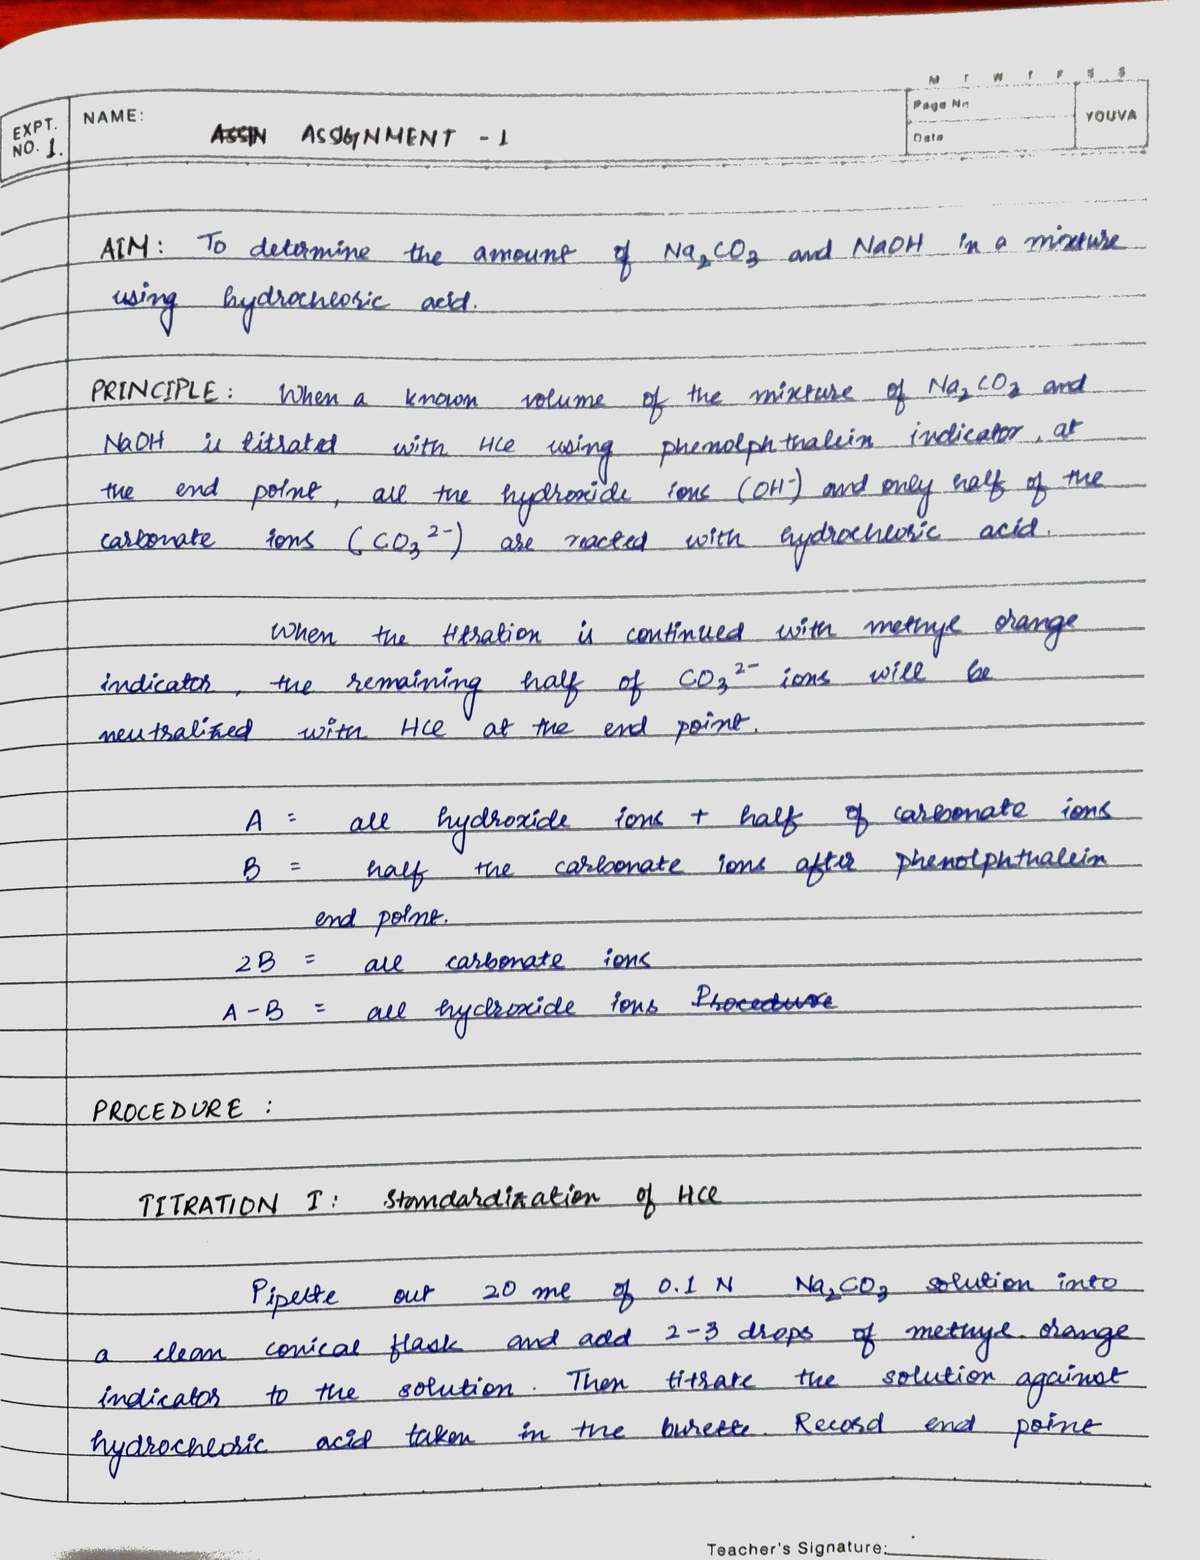 M T W T F S S
Page No
YOUVA
Date
EXPT. NO. 1.
NAME:
ASSIN ASSIGNMENT - 1
AIM: To determine the amount of Na₂CO₃ and NaOH in a mixture
using hydrochloric acid.
PRINCIPLE: When a known volume of the mixture of Na₂CO₃ and
NaOH is titrated with HCl using phenolphthalein indicator, at
the end point, all the hydroxide ions (OH⁻) and only half of the
carbonate ions (CO₃²⁻) are reacted with hydrochloric acid.
When the titration is continued with methyl orange
indicator, the remaining half of CO₃²⁻ ions will be
neutralized with HCl at the end point.
A = all hydroxide ions + half of carbonate ions
B = half the carbonate ions after phenolphthalein
end point.
2B = all carbonate ions
A-B = all hydroxide ions Procedure
PROCEDURE :
TITRATION I: Standardization of HCl
Pipette out 20 ml of 0.1 N Na₂CO₃ solution into
a clean conical flask and add 2-3 drops of methyl orange
indicator to the solution. Then titrate the solution against
hydrochloric acid taken in the burette. Record end point
Teacher's Signature: